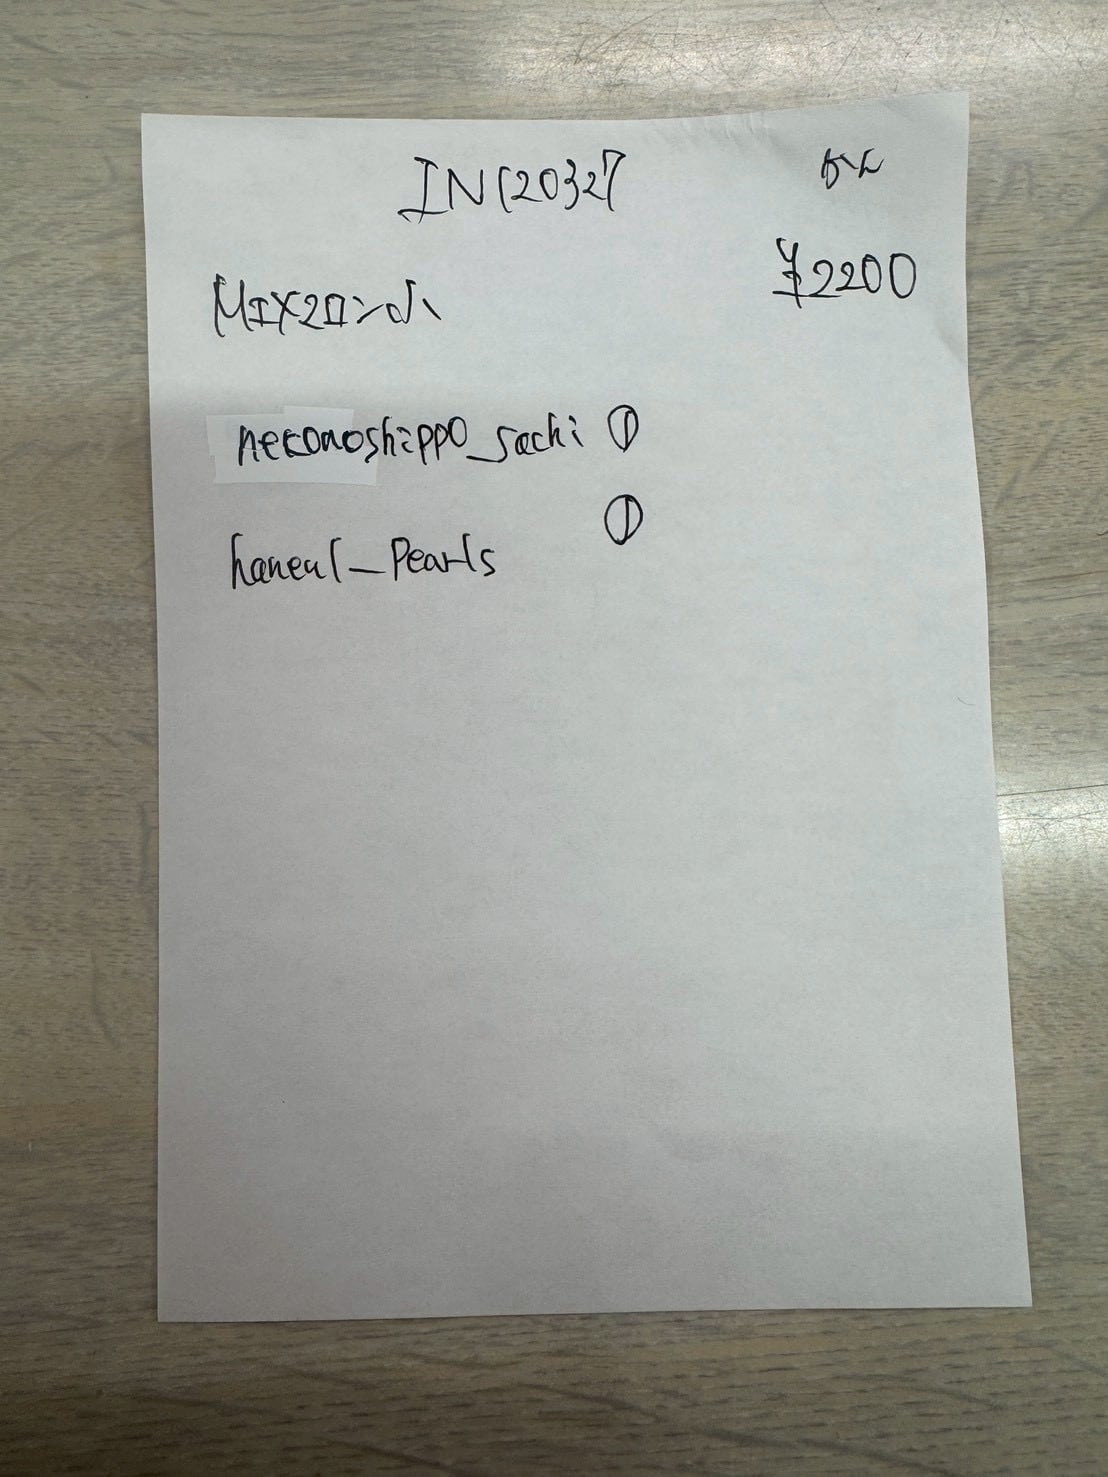 INC20327
¥2200
MIXコロン小
nekonoshippo_sachi ①
haneul_Pearls ①